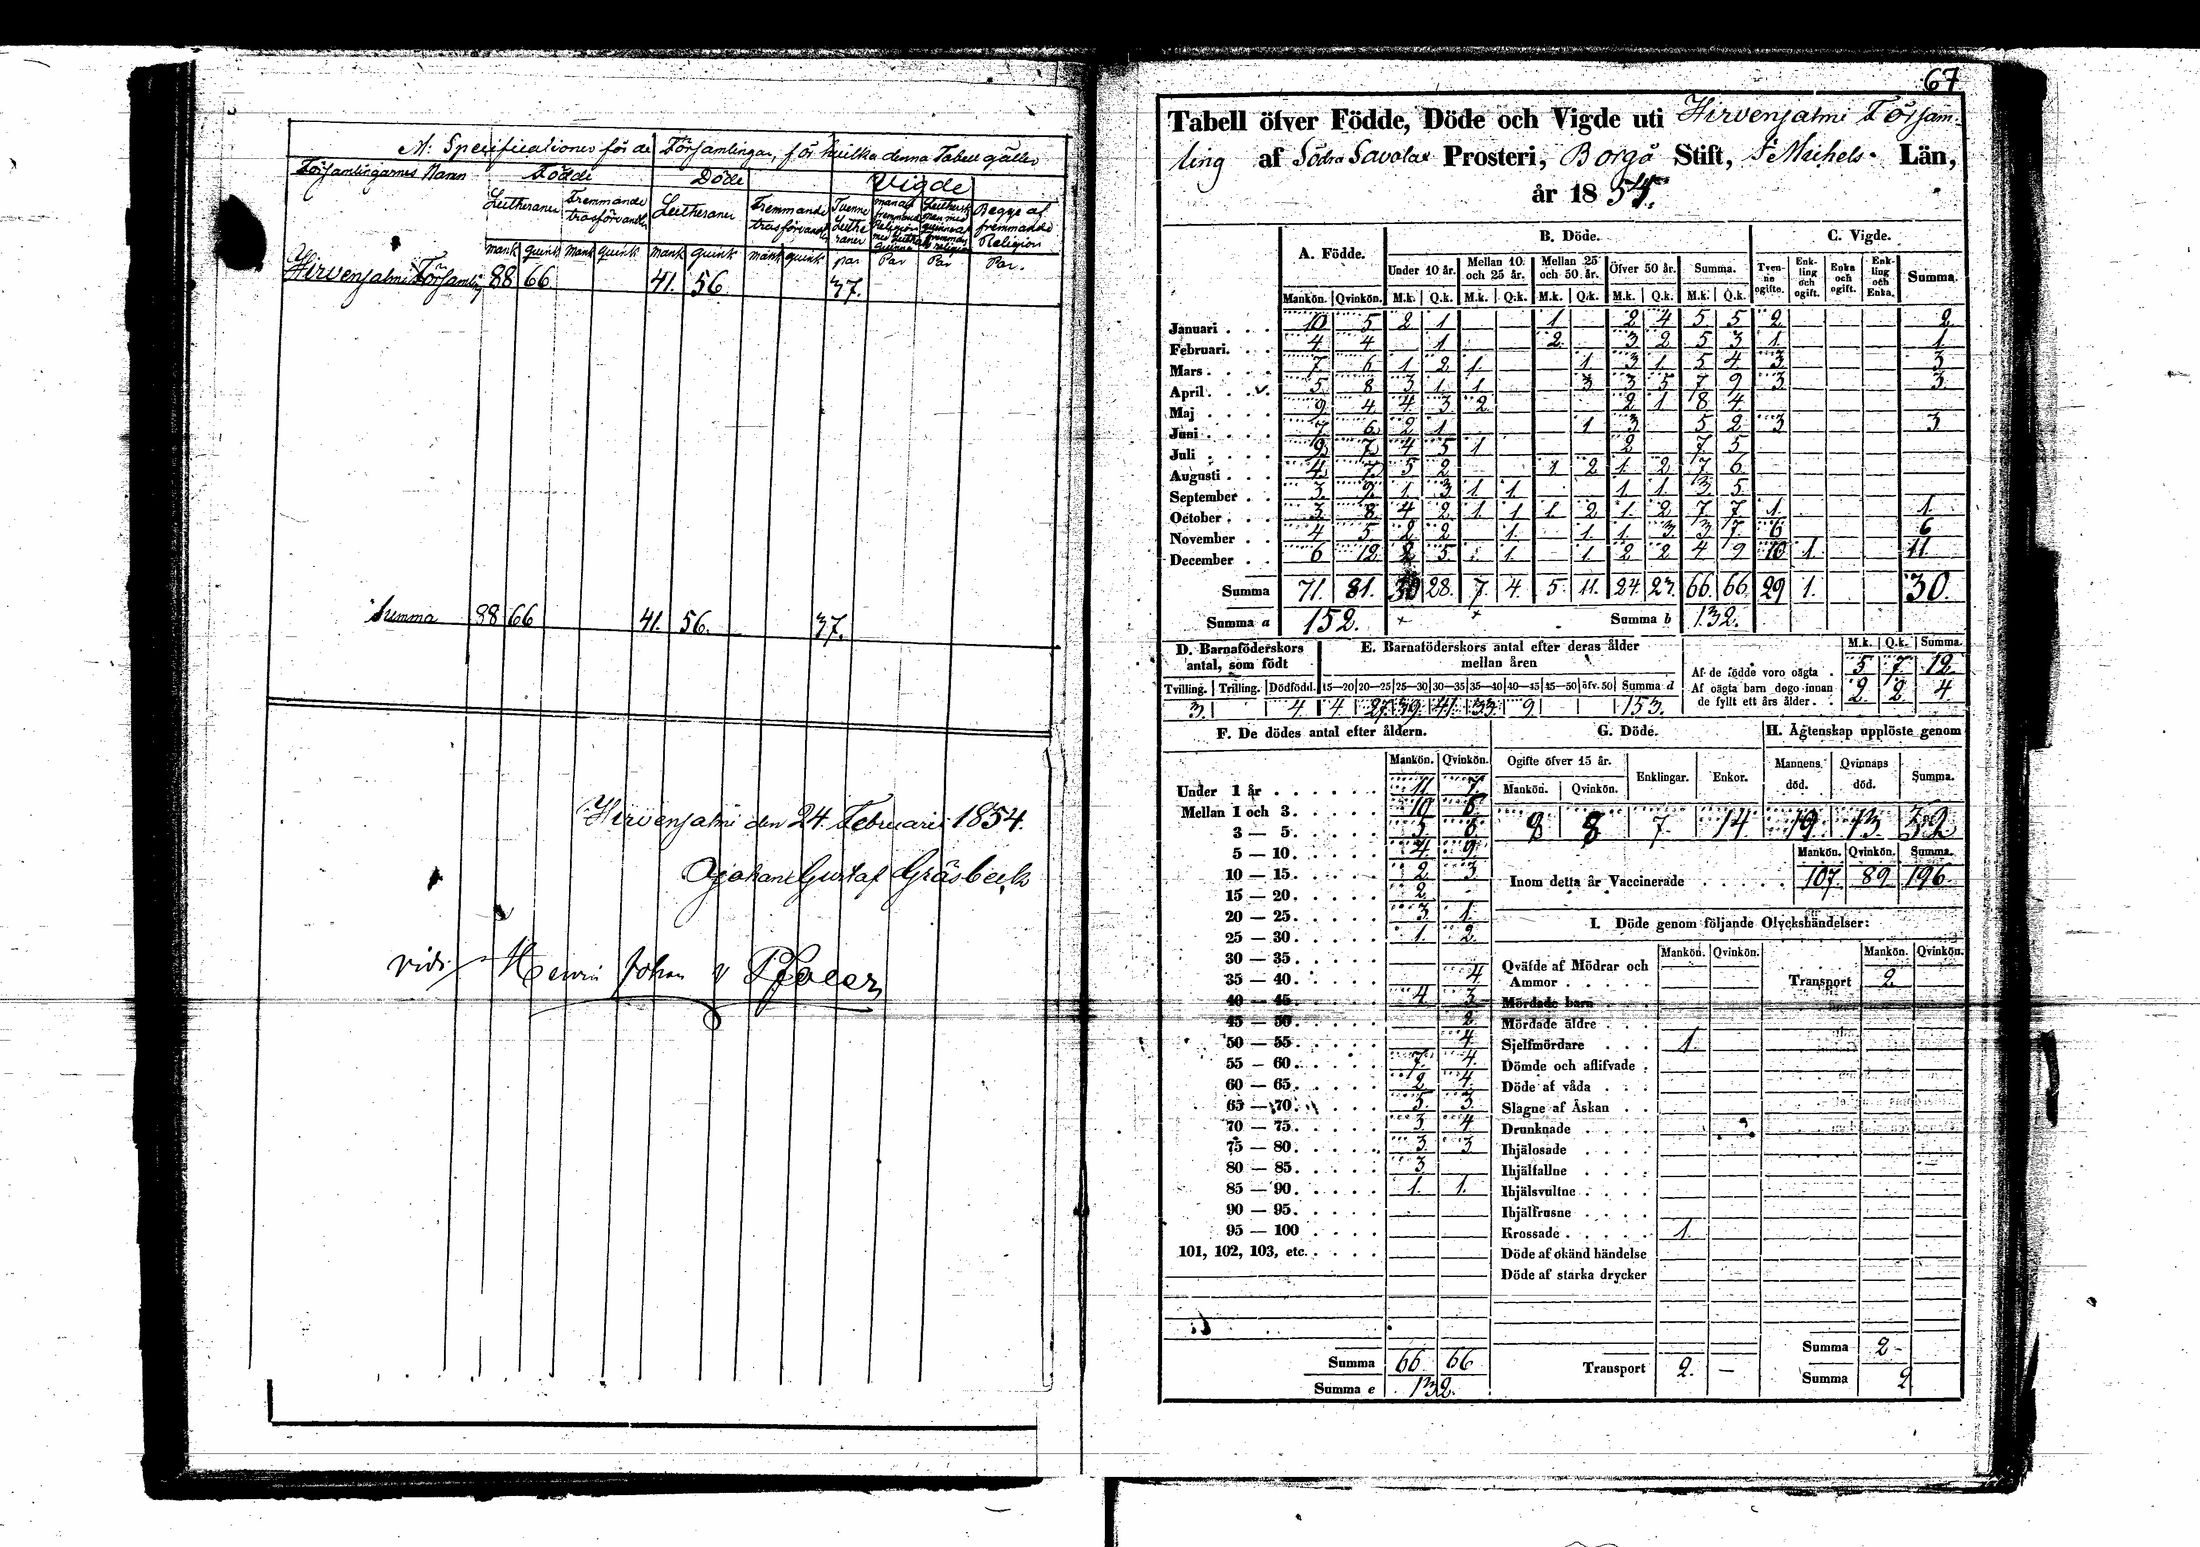 M: Specificationer för de Församlingar, för hvilka denna Tabell gäller
Församlingarnes Namn Födde Döde Vigde
Lutheraner Fremmande trosförvandter Lutheraner Fremmande trosförvandter Tvenne Lutheraner Begge af fremmande Religion
mank qvink mank qvink mank qvink mank qvink par Par Par Par.
Hirvensalmi Församling 88 66 41. 56. 37.
Summa 88 66 41. 56. 37.
Hirvensalmi den 24. Februarii 1854.
Johan Gustaf Gråsbeck
vidi Henric Johan
67
Tabell öfver Födde, Döde och Vigde uti Hirvensalmi Försam-
ling af Södra Savolax Prosteri, Borgå Stift, S:t Michels Län,
år 1854.
A. Födde. B. Döde. C. Vigde.
Under 10 år. Mellan 10 och 25 år. Mellan 25 och 50 år. Öfver 50 år. Summa. Tvenne ogifte. Enkling och ogift. Enka och ogift. Enkling och Enka. Summa.
Mankön. Qvinkön. M.k. Q.k. M.k. Q.k. M.k. Q.k. M.k. Q.k. M.k. Q.k.
Januari . . . 10 5 2 1 1 2 4 5 5 2 2
Februari. . . 4 4 1 2 3 2 5 3 1 1
Mars . . . . 7 6 1 2 1 1 3 1 5 4 3 3
April . . . 5 8 3 1 1 3 3 5 7 9 3 3
Maj . . . . 9 4 4 3 2 2 1 8 4
Juni . . . . 7 6 2 1 1 3 5 2 3 3
Juli . . . . 9 7 4 5 1 2 7 5
Augusti . . . 4 7 5 2 1 2 1 2 7 6
September . . 3 9 1 3 1 1 1 1 3 5
October . . . 3 8 4 2 1 1 1 2 1 2 7 7 1 1
November . . 4 5 2 2 1 1 1 3 3 7 6 6
December . . 6 12 2 5 1 1 2 2 4 9 10 1 11
Summa 71. 81. 30 28. 7. 4. 5. 11. 24. 23. 66. 66. 29 1. 30.
Summa a 152. Summa b 132.
D. Barnaföderskors antal, som födt E. Barnaföderskors antal efter deras ålder mellan åren
M.k. Q.k. Summa.
Tvilling. Trilling. Dödfödd. 15—20 20—25 25—30 30—35 35—40 40—45 45—50 öfv. 50 Summa d
3. 4 4 27 39 41 33 9 153.
Af de födde voro oägta . 5 7 12
Af oägta barn dogo innan de fyllt ett års ålder . . 2 2 4
F. De dödes antal efter åldern. G. Döde. H. Ägtenskap upplöste genom
Mankön. Qvinkön. Ogifte öfver 15 år. Enklingar. Enkor. Mannens död. Qvinnans död. Summa.
Mankön. Qvinkön.
9 8 7. 14 19. 13 32
Mankön. Qvinkön. Summa.
Inom detta år Vaccinerade . . . . . 107. 89 196.
Under 1 år . . . . . . 11 7.
Mellan 1 och 3. . . . . 10
3 — 5. . . . . 5 6
5 — 10. . . . . 4 9
10 — 15. . . . . 2 3
15 — 20. . . . . 2
20 — 25. . . . . 3 1.
25 — 30. . . . . 1. 2.
30 — 35. . . . .
35 — 40. . . . . 4
40 — 45. . . . . 4 3
45 — 50. . . . . 2
50 — 55. . . . . 4.
55 — 60. . . . . 7. 4.
60 — 65. . . . . 2 4.
65 — 70. . . . . 5. 3.
70 — 75. . . . . 3 4
75 — 80. . . . . 3. 3
80 — 85. . . . . 3.
85 — 90. . . . . 1. 1.
90 — 95. . . . .
95 — 100 . . . .
101, 102, 103, etc. . . . .
Summa 66 66
Summa e 132.
I. Döde genom följande Olyckshändelser:
Mankön. Qvinkön. Mankön. Qvinkön.
Qväfde af Mödrar och Ammor . . . . . Transport 2.
Mördade barn
Mördade äldre . . .
Sjelfmördare . . . 1.
Dömde och aflifvade .
Döde af våda . . .
Slagne af Åskan . .
Drunknade . . . .
Ihjälosade . . . .
Ihjälfallne . . . .
Ihjälsvultne . . . .
Ihjälfrusne . . . .
Krossade . . . . . 1.
Döde af okänd händelse
Döde af starka drycker
Transport 2. —
Summa 2
Summa 2